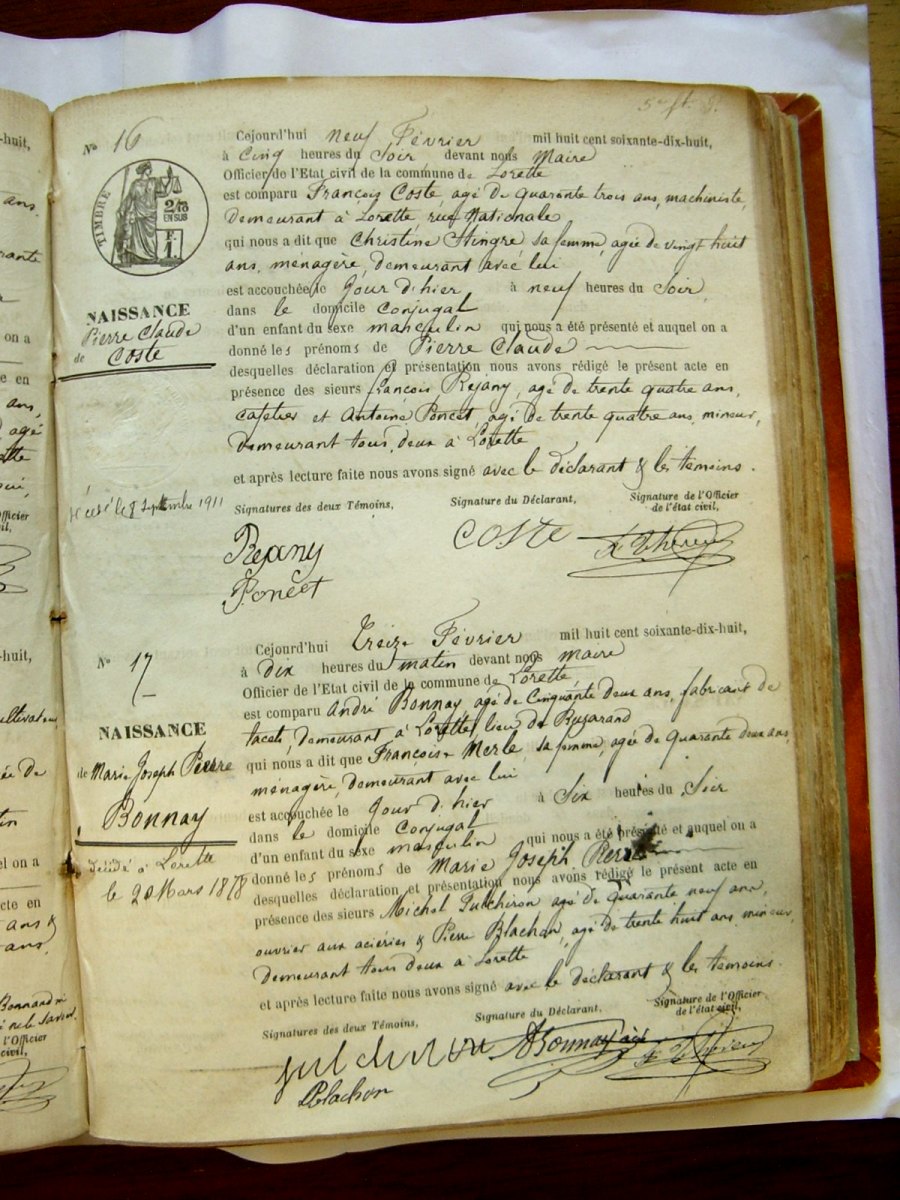 Nº 16
TIMBRE
2/10
EN SUS
F.
1.
NAISSANCE
Pierre Claude
de Coste
Décédé le 8 Septembre 1911
Cejourd'hui neuf Février mil huit cent soixante-dix-huit,
à Cinq heures du Soir devant nous Maire
Officier de l'Etat civil de la commune de Lorette
est comparu François Coste, agé de quarante trois ans, machiniste,
demeurant à Lorette rue Nationale
qui nous a dit que Christine Hingre sa femme, agée de vingt huit
ans, ménagère, demeurant avec lui
est accouchée le Jour d'hier à neuf heures du Soir,
dans le domicile Conjugal
d'un enfant du sexe masculin qui nous a été présenté et auquel on a
donné les prénoms de Pierre Claude
desquelles déclaration et présentation nous avons rédigé le présent acte en
présence des sieurs françois Rejany, agé de trente quatre ans,
cafetier et Antoine Poncet, agé de trente quatre ans, mineur,
demeurant tous deux à Lorette
et après lecture faite nous avons signé avec le déclarant & les témoins.
Signatures des deux Témoins, Signature du Déclarant, Signature de l'Officier
de l'état civil,
Rejany COSTE
Poncet
Nº 17
NAISSANCE
de Marie Joseph Pierre
Bonnay
décédé à Lorette
le 2 Mars 1878
Cejourd'hui Treize Février mil huit cent soixante-dix-huit,
à Dix heures du matin devant nous Maire
Officier de l'Etat civil de la commune de Lorette
est comparu André Bonnay agé de Cinquante deux ans, fabricant de
lacets, demeurant à Lorette, lieu de
qui nous a dit que Françoise Merle, sa femme, agée de quarante deux ans,
ménagère, demeurant avec lui
est accouchée le Jour d'hier à Six heures du Soir
dans le domicile Conjugal
d'un enfant du sexe masculin qui nous a été présenté et auquel on a
donné les prénoms de Marie Joseph Pierre
desquelles déclaration et présentation nous avons rédigé le présent acte en
présence des sieurs Michel agé de Quarante neuf ans,
ouvrier aux aciéries & Pierre Blachon, agé de trente huit ans mineur
demeurant tous deux à Lorette
et après lecture faite nous avons signé avec le déclarant & les témoins.
Signatures des deux Témoins, Signature du Déclarant, Signature de l'Officier
de l'état civil,
ABonnay
Blachon